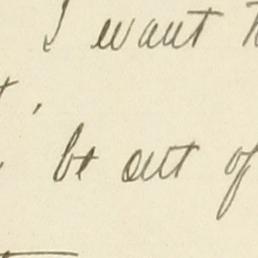 I want
be out of